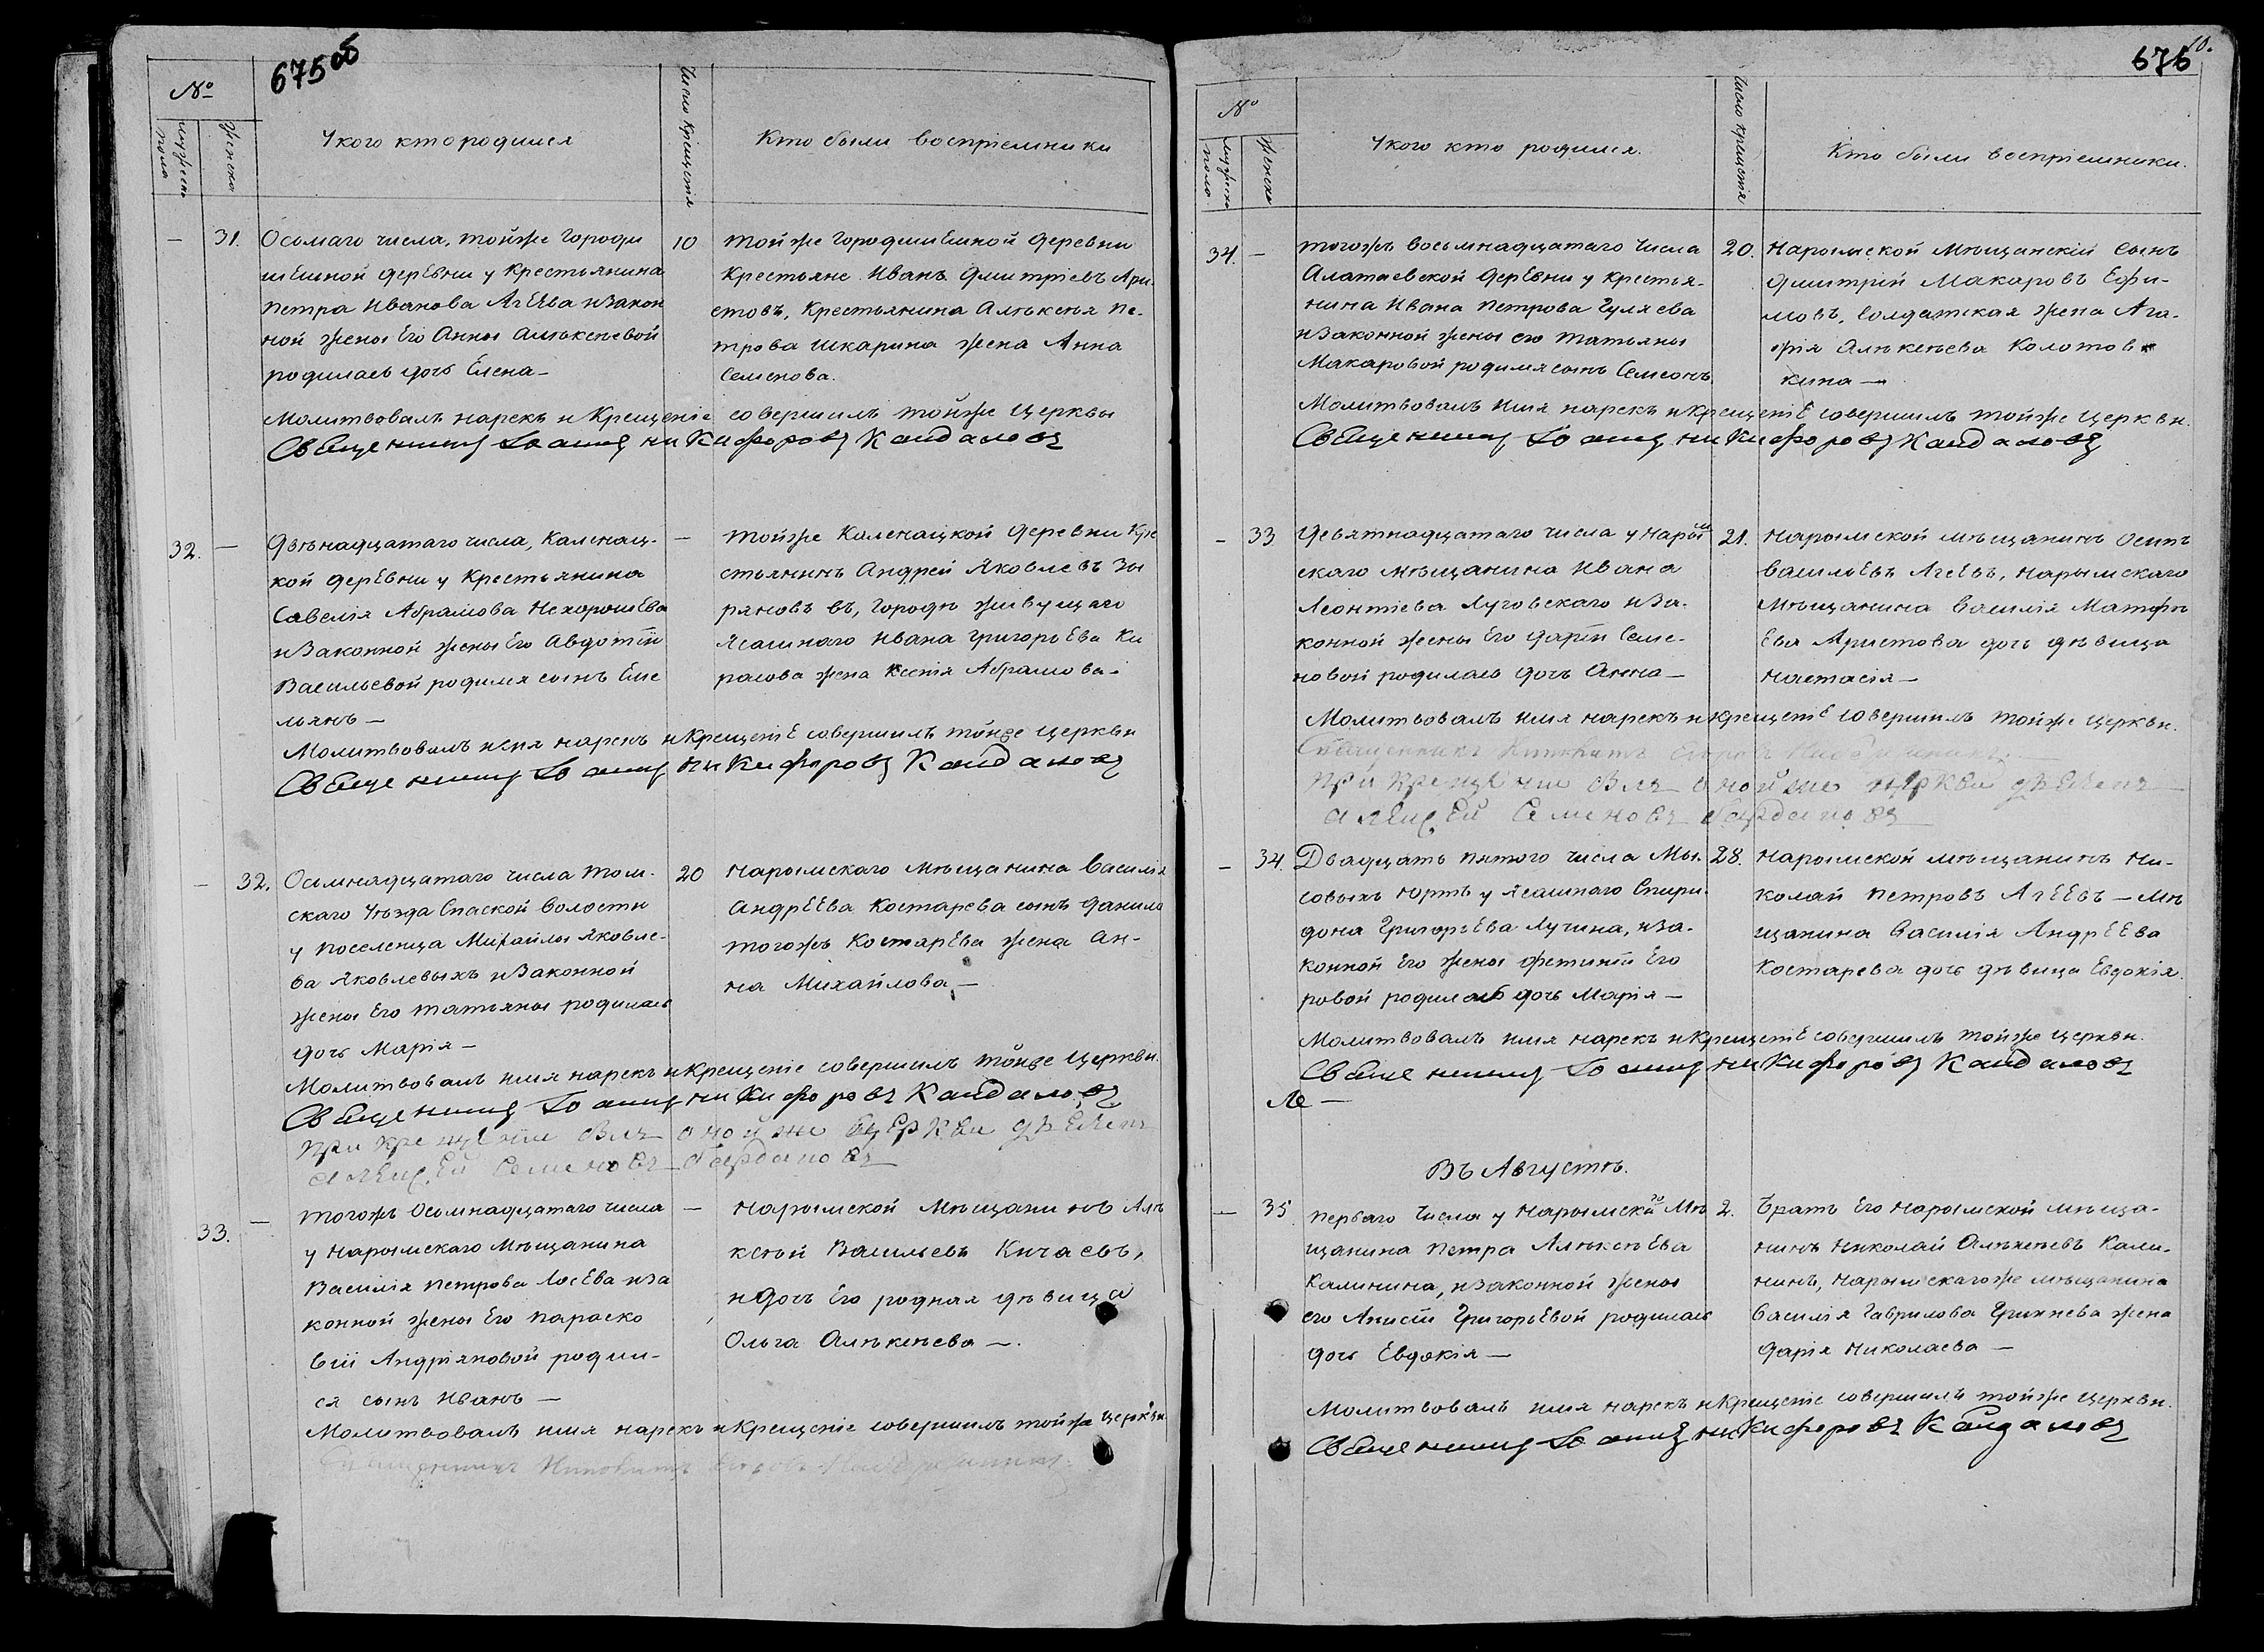 675об
№
мужеска пола
женска
У кого кто родился
Число крещенія
Кто были воспріемники
— 31.
Осьмаго числа, тойже Городи
щенской деревни у Крестьянина
Петра Иванова Агѣева и Закон
ной жены Его Анны Алѣксеевой
родилась дочь Елена —
10
Тойже Городищенской деревни
Крестьяне Иванъ Дмитріевъ Ари
стовъ, Крестьянина Алѣксѣя Пе-
трова Шкарина жена Анна
Семенова.
Молитвовалъ нарекъ и Крещеніе совершилъ тойже Церквы
Священникъ Іоаннъ Никифоровъ Кайдаловъ
32. —
Двѣнадцатаго числа, Каленац-
кой деревни у Крестьянина
Савелія Абрамова Нехорошева
и Законной жены Его Авдотіи
Васильевой родился сынъ Еме
льянъ —
—
Тойже Каленацкой деревни Кре
стьянинъ Андрей Яковлевъ Зы
ряновъ въ, Городѣ живущаго
Ясашнаго Ивана Григорьева Ки
расова жена Ксенія Абрамова -
Молитвовалъ имя нарекъ и Крещеніе совершилъ тойже Церкви
Священникъ Іоаннъ Никифоровъ Кайдаловъ
— 32.
Осьмнадцатаго числа Том-
скаго Уѣзда Спаской Волости
у поселенца Михайлы Яковле-
ва Яковлевыхъ и Законной
жены Его Татьяны родилась
дочь Марія —
20
Нарымскаго Мѣщанина Василія
Андрѣева Костарева сынъ Данило
тогожъ Костарева жена Ан-
на Михайлова —
Молитвовалъ имя нарекъ и Крещеніе совершилъ тойже Церкви.
Священникъ Іоаннъ Никифоровъ Кайдаловъ
при крещеніи былъ оной же Церкви дьячекъ
Алексей Семеновъ
33. —
Тогожъ Осьмнадцатаго числа
у Нарымскаго Мѣщанина
Василія Петрова Лосева и за
конной жены Его Параско
віи Андріяновой родил-
ся сынъ Иванъ —
—
Нарымской Мѣщанинъ Алѣ
ксѣй Васильевъ Кичаевъ,
и дочь Его родная дѣвица
Ольга Алѣксѣева —.
Молитвовалъ имя нарекъ и Крещеніе совершилъ тойже Церкви.
Священникъ
676
10.
№
мужеска поло
женска
У кого кто родился.
Число крещенія
Кто были воспріемники.
34. —
Тогожъ Восьмнадцатаго Числа
Алатаевской Деревни у крестья-
нина Ивана Петрова Гуляева
и Законной жены его Татьяны
Макаровой родился сынъ Семеонъ
20.
Нарымской Мѣщанскій Сынъ
Дмитрій Макаровъ Ефи-
мовъ, Солдатская жена Ага-
фія Алѣксѣева Колотов
кина —
Молитвовалъ Имя нарекъ и Крещеніе совершилъ тойже Церкви.
Священникъ Іоаннъ Никифоровъ Кайдаловъ
— 33
Девятнадцатаго числа у Нарым
скаго Мѣщанина Ивана
Леонтіева Луговскаго и За-
конной жены Его Дарьи Семе-
новой родилась дочь Анна —
21.
Нарымской мѣщанинъ Осипъ
Васильевъ Агѣевъ, Нарымскаго
Мѣщанина Василія Матфѣ
Ева Аристова дочь дѣвица
Настасія —
Молитвовалъ имя нарекъ и крещеніе совершилъ тойже Церкви.
Священникъ
при крещеніи былъ оной же церкви дьячекъ
Алексей Семеновъ
— 34.
Двадцать пятого числа Мы-
совыхъ Юртъ у Ясашнаго Спири-
дона Григорьева Лучина, и за-
конной Его жены Фетиніи Его
ровой родилась дочь Марія —
28.
Нарымской мѣщанинъ Ни-
колай Петровъ Агѣевъ — Мѣ
щанина Василія Андрѣева
Костарева дочь дѣвица Евдокія.
Молитвовалъ имя нарекъ и Крещеніе совершилъ тойже Церкви.
Священникъ Іоаннъ Никифоровъ Кайдаловъ
Въ Августѣ.
— 35.
Перваго Числа у Нарымскаго Мѣ
щанина Петра Алѣксѣева
Калинина, и Законной жены
его Анисіи Григорьевой родилась
дочь Евдокія —
2.
Братъ Его Нарымской мѣща-
нинъ Николай Алѣксѣевъ Кали-
нинъ, Нарымскагоже мѣщанина
Василія Гаврилова Грихнева жена
Дарія Николаева —
Молитвовалъ имя нарекъ и Крещеніе совершилъ тойже Церкви.
Священникъ Іоаннъ Никифоровъ Кайдаловъ